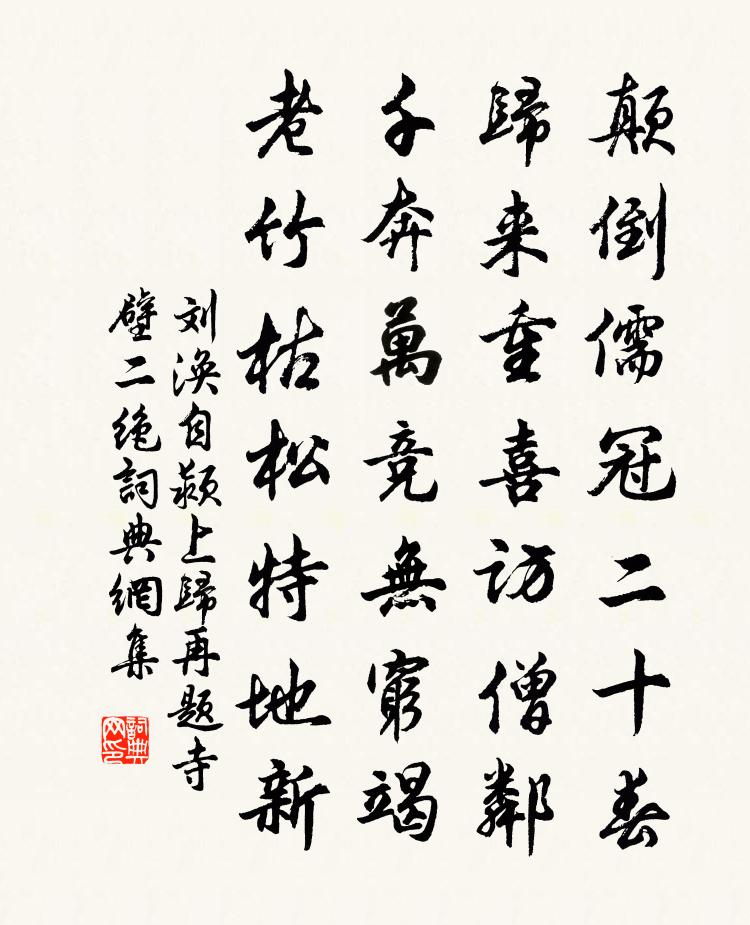 顛倒儒冠二十春
歸来重喜訪僧鄰
千奔萬竞無窮竭
老竹枯松特地新
刘涣自颍上歸再题寺
壁二絶詞典網集
詞典网印